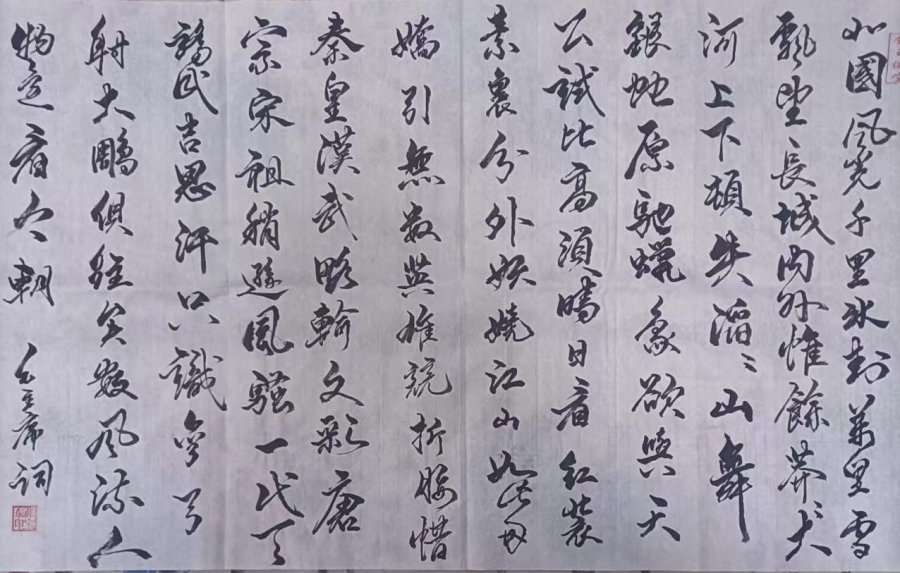 北國风光千里冰封萬里雪
飄望長城内外惟餘莽々大
河上下頓失滔々山舞
銀蛇原馳蠟象欲與天
公試比高須晴日看紅裝
素裹分外妖嬈江山如此多
嬌引無數英雄競折腰惜
秦皇漢武略輸文彩唐
宗宋祖稍遜風騷一代天
驕成吉思汗只識彎弓
射大鵰俱往矣數风流人
物還看今朝 毛主席詞